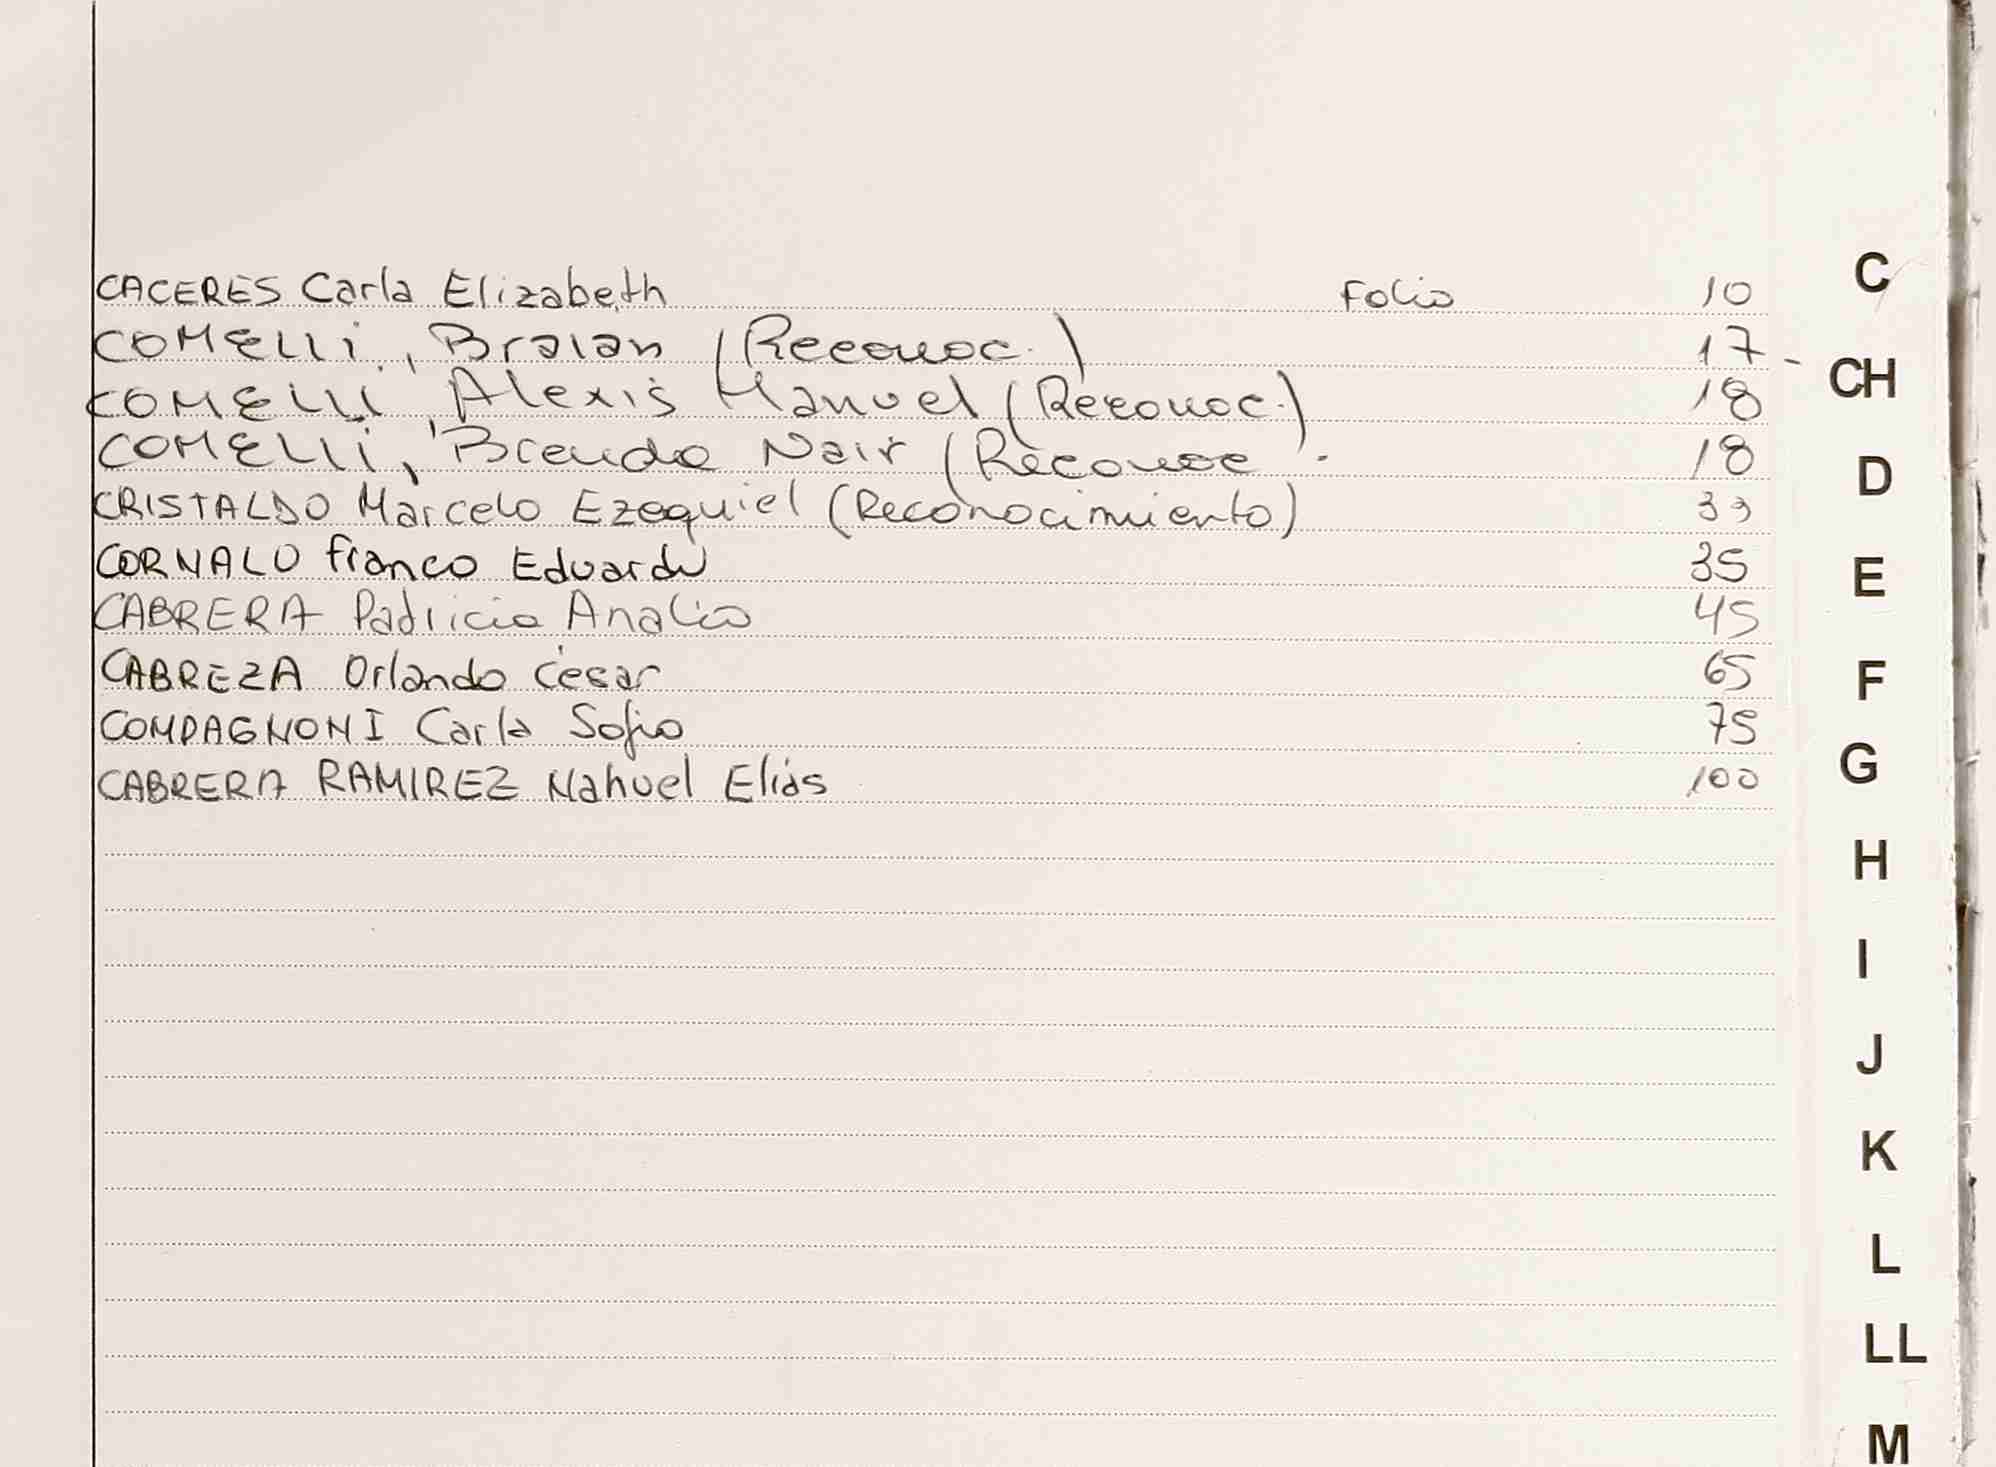 CACERES Carla Elizabeth Folio 10
COMELLI, Braian (Reconoc.) 17-
COMELLI, Alexis Manuel (Reconoc.) 18
COMELLI, Brenda Nair (Reconoc. 18
CRISTALDO Marcelo Ezequiel (Reconocimiento) 33
CORNALO Franco Eduardo 35
CABRERA Patricia Analia 45
CABREZA Orlando César 65
COMPAGNONI Carla Sofia 75
CABRERA RAMIREZ Nahuel Elias 100
C
CH
D
E
F
G
H
I
J
K
L
LL
M